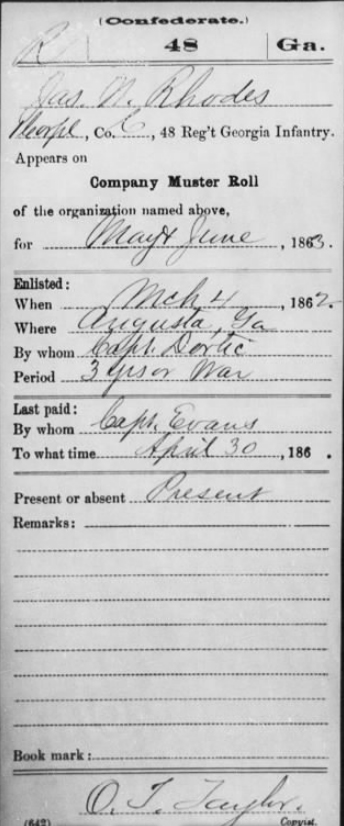 (Confederate.)
R 48 Ga.
Jas. N. Rhodes
, Co. C, 48 Reg't Georgia Infantry.
Appears on
Company Muster Roll
of the organization named above,
for May & June, 1863.
Enlisted:
When Mch 4, 1862.
Where Augusta, Ga
By whom Capt. Dortic
Period 3 yrs or War
Last paid:
By whom Capt. Evans
To what time April 30, 186 .
Present or absent Present
Remarks:
Book mark:
O. T. Taylor.
(642) Copyist.